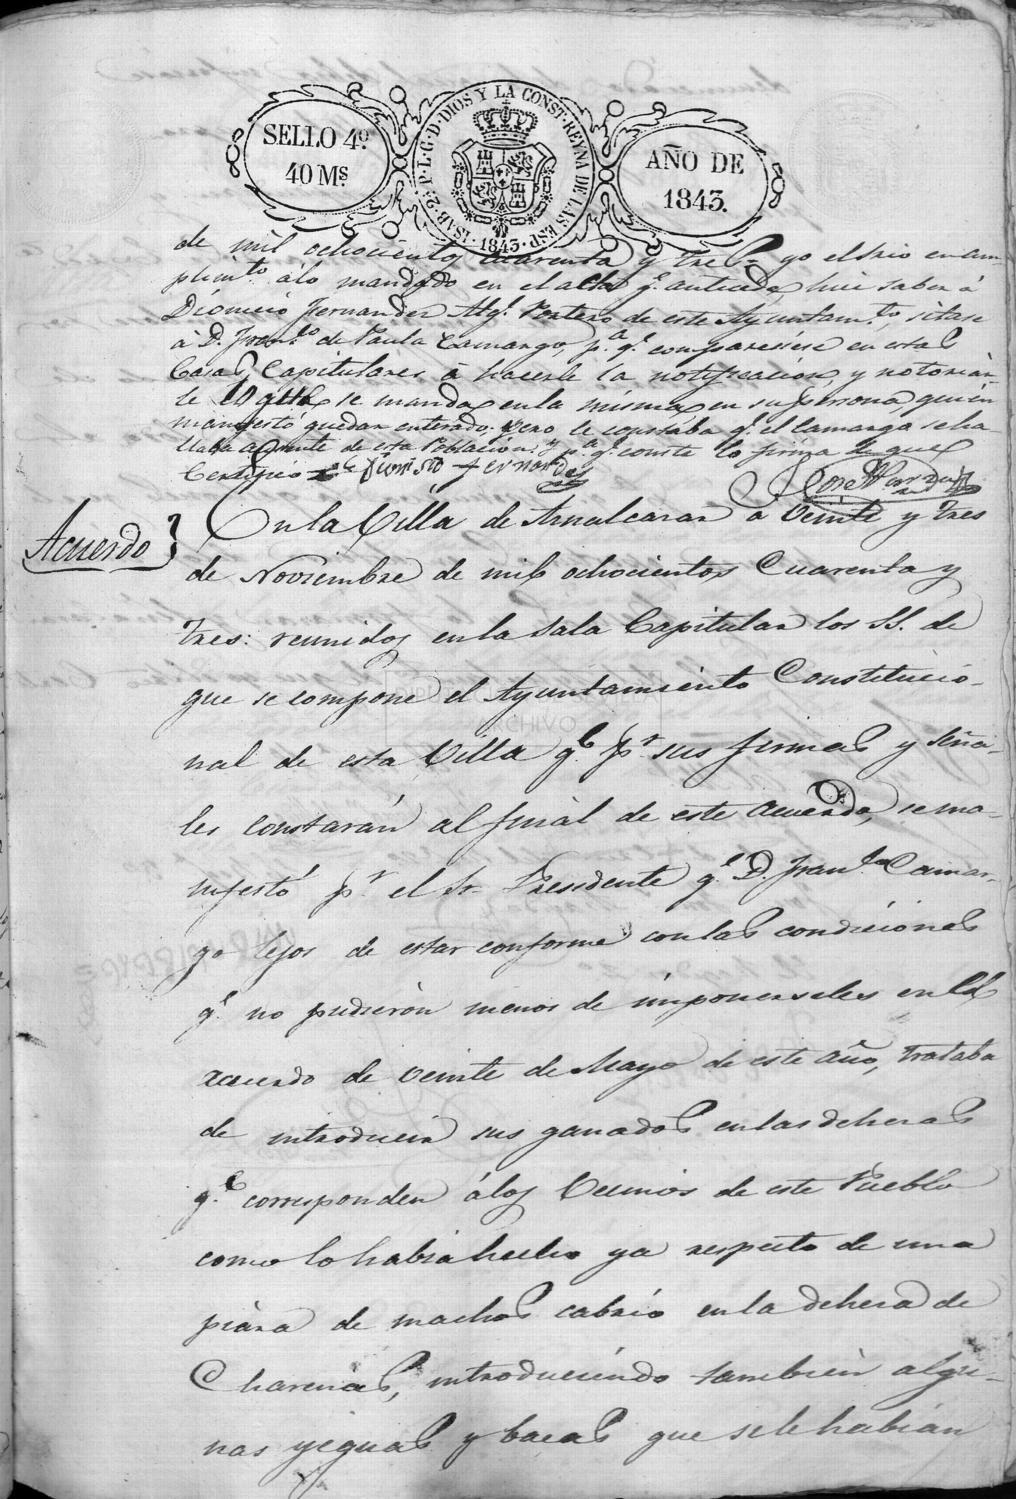 SELLO 4º.
40 Ms.
ISAB. 2ª. P. L. G. D. DIOS Y LA CONST. REYNA DE LAS ESP. 1843.
AÑO DE
1843.
de mil ochocientos cuarenta y tres = yo el Srio en cum-
plimto. alo mandado en el acta qe. antecede, hice saber á
Dionicio Fernandez Algl. Portero de este Ayuntamto., sitase
á D. Franco. de Paula Camargo, pa. qe. compareciese en estas
Casas Capitulares á hacerle la notificacion, y notoriar
le lo que se manda en la misma en su persona, quien
manifestó quedar enterado, pero le constaba qe. el Camargo se ha
llaba ausente de esta Poblacion. Y pa. qe. conste lo firma de que
Certifico =
Dionisio Fernandes
Jose
Acuerdo
En la Villa de Aznalcazar a Veinte y tres
de Noviembre de mil ochocientos Cuarenta y
tres: reunidos en la Sala Capitular los SS. de
que se compone el Ayuntamiento Constitucio-
nal de esta Villa qe. pr. sus firmas y seña-
les constarán al final de este acuerdo, se ma-
nifestó pr. el Sr. Presidente qe. D. Franco. Camar-
go lejos de estar conforme con las condiciones
qe. no pudieron menos de imponerseles en el
acuerdo de Veinte de Mayo de este año, trataba
de introducir sus ganados en las dehesas
qe. corresponden álos Vecinos de este Pueblo
como lo habia hecho ya respecto de una
piara de machos cabrio en la dehesa de
Charenas, introduciendo tambien algu-
nas yeguas y bacas que se le habian
ARCHIVO